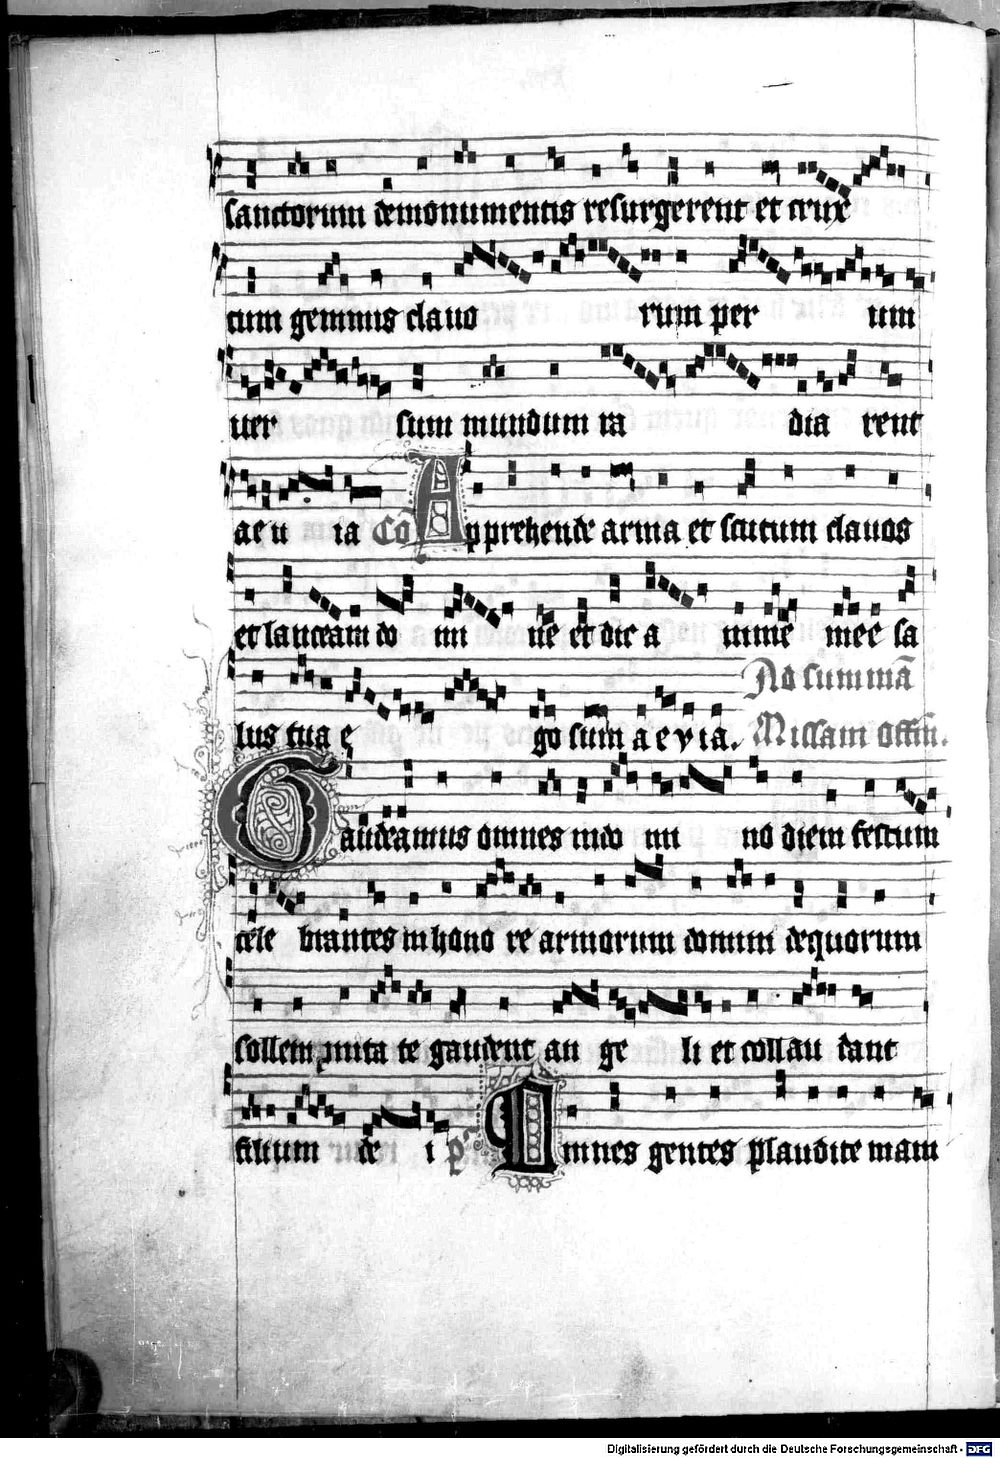 sanctorum de monumentis resurgerent et crux
cum gemmis clauo rum per um
uer sum mundum ra dia rent
ae u ia Cō Apprehende arma et scutum clauos
et lanceam do mi ne et dic a nime mee sa
lus tua e go sum a e v i a. Ad summā
Missam offm.
Gaudeamus omnes in do mi no diem festum
cele brantes in hono re armorum domini de quorum
sollempnita te gaudent an ge li et collau dant
filium de i p̄ Omnes gentes plaudite mani
Digitalisierung gefördert durch die Deutsche Forschungsgemeinschaft - DFG